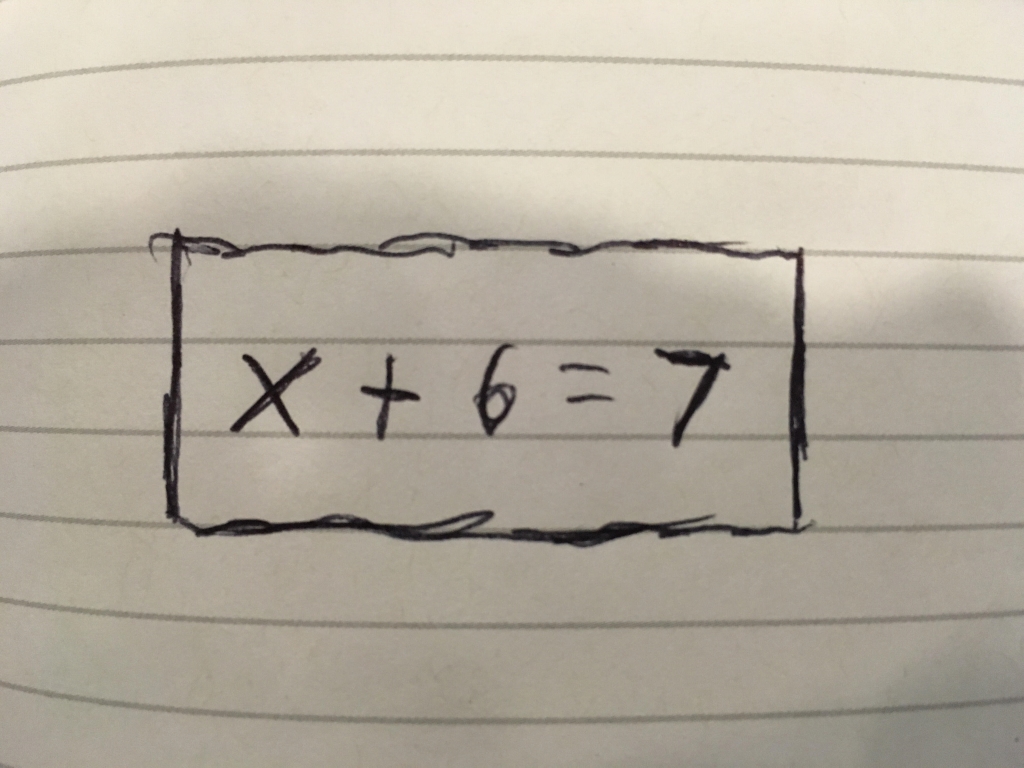 x + 6 = 7